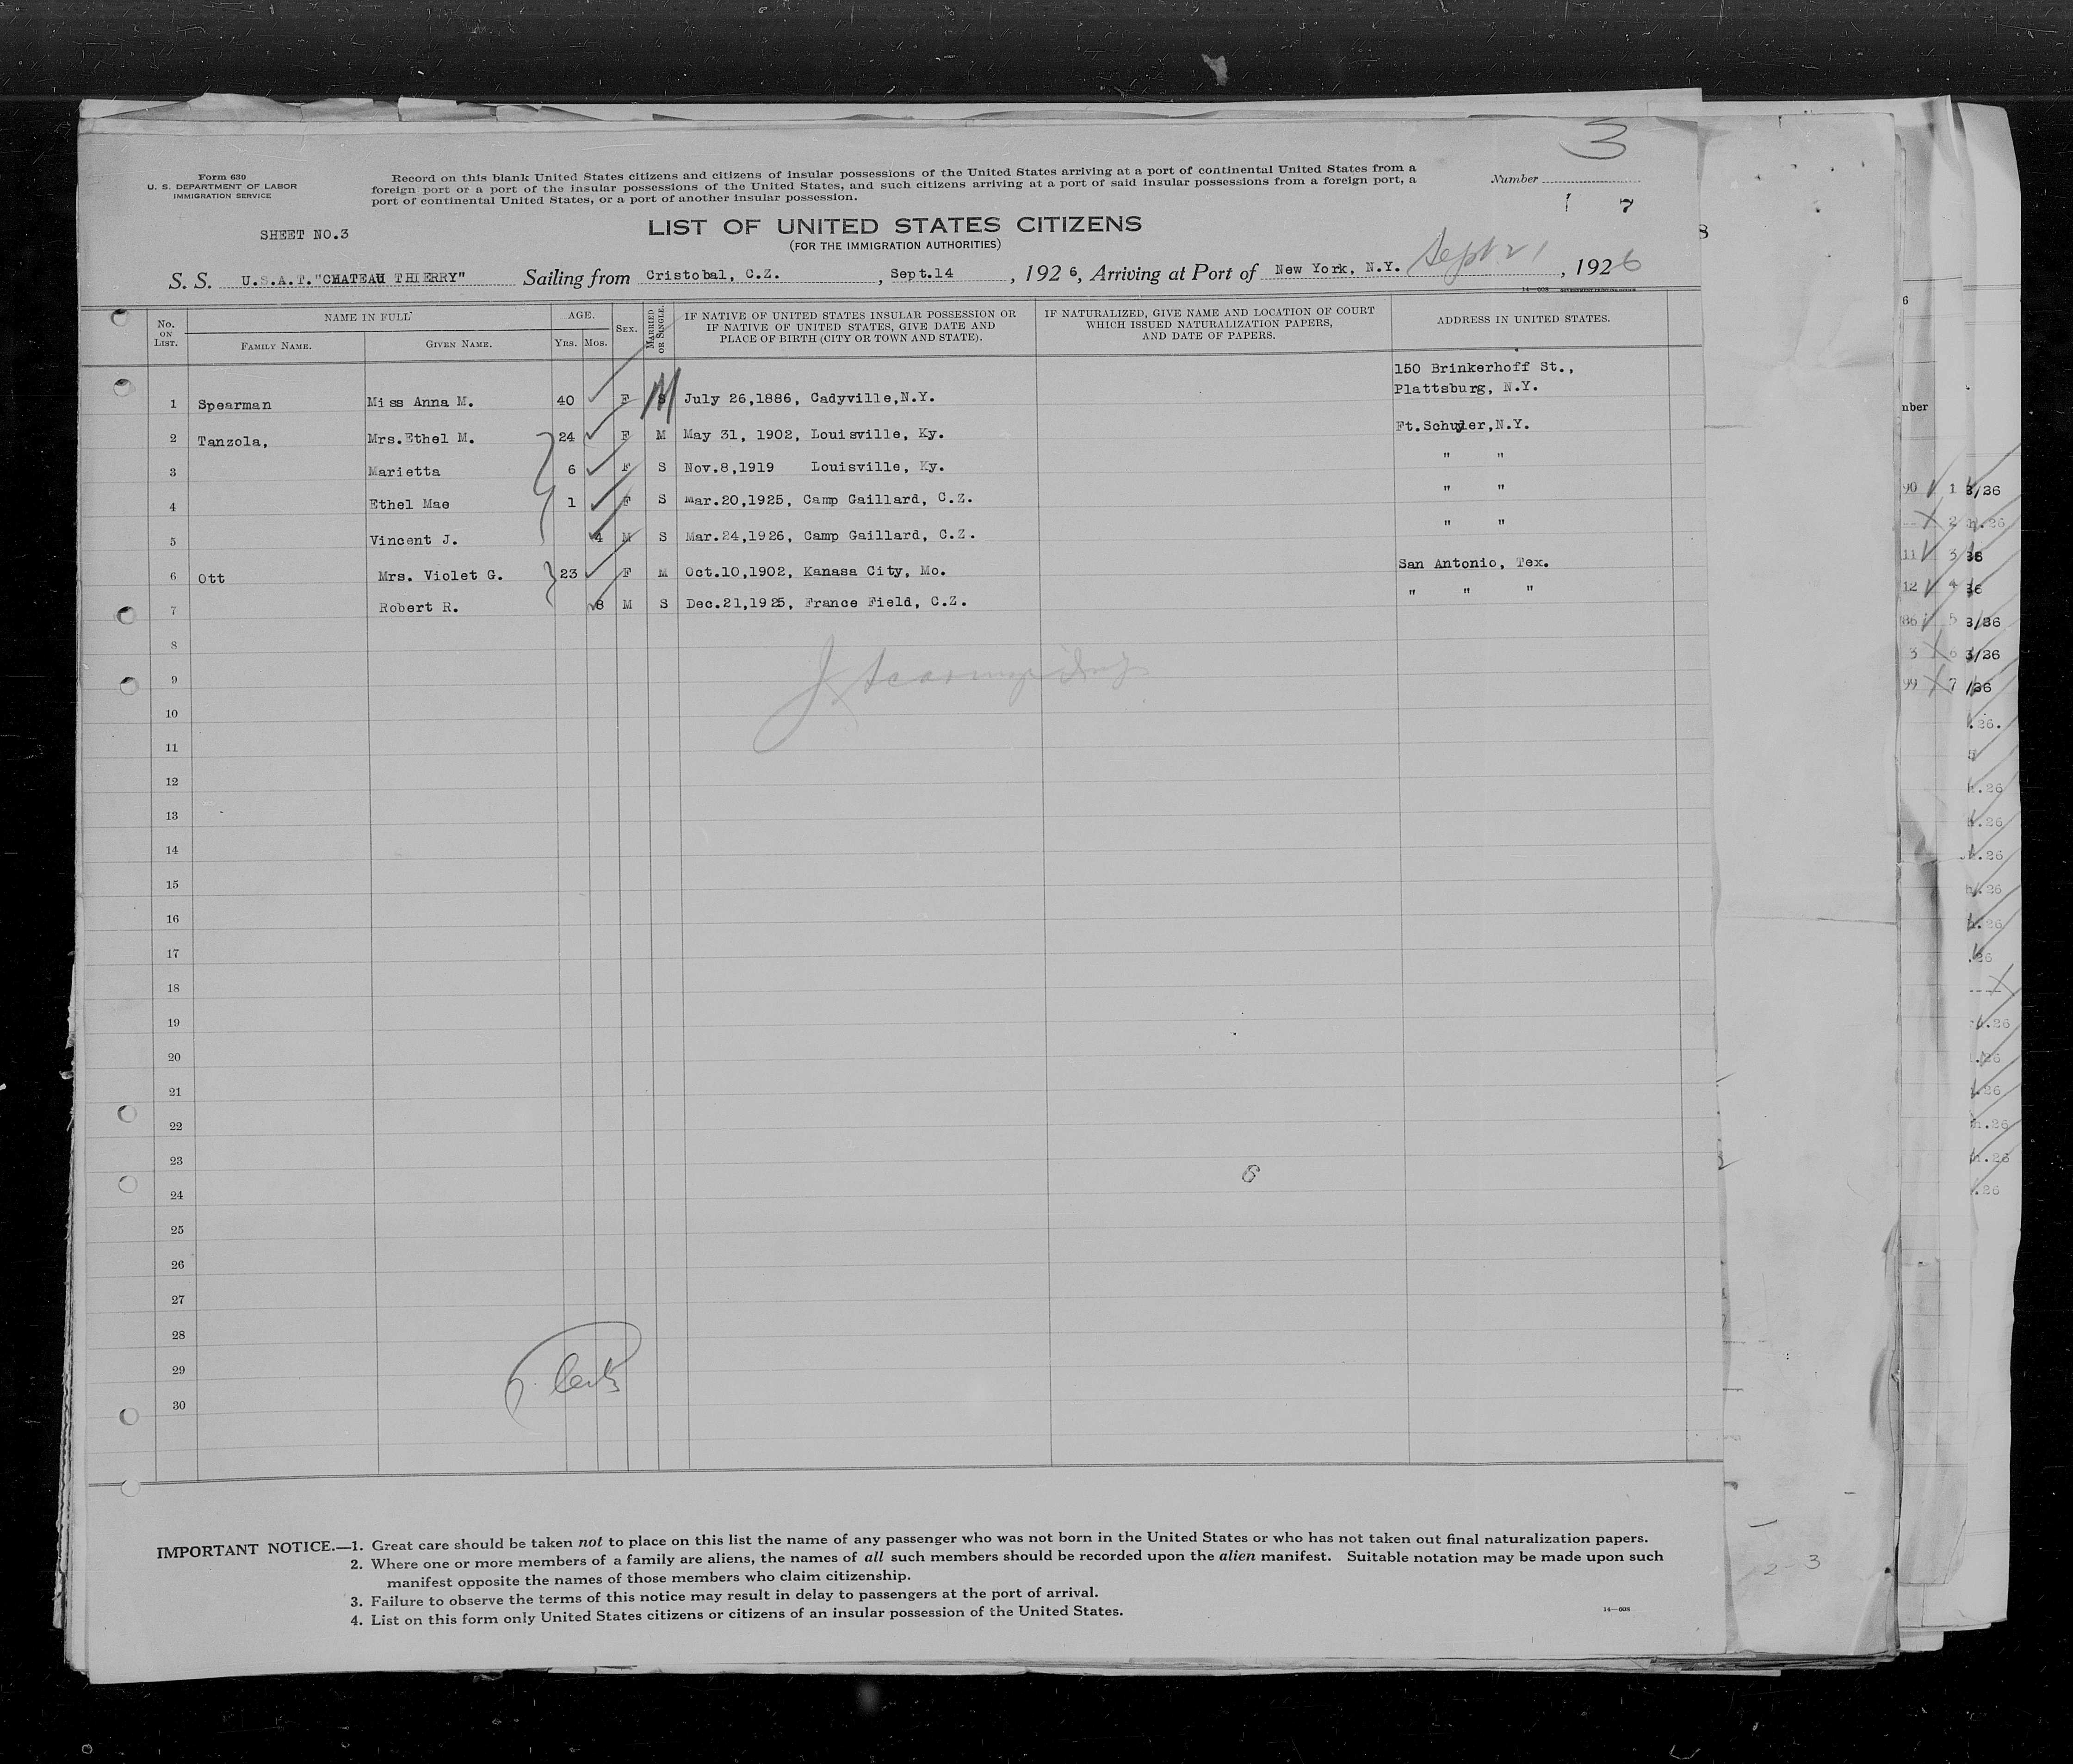 3
Form 630
U. S. DEPARTMENT OF LABOR
IMMIGRATION SERVICE
Record on this blank United States citizens and citizens of insular possessions of the United States arriving at a port of continental United States from a
foreign port or a port of the insular possessions of the United States, and such citizens arriving at a port of said insular possessions from a foreign port, a
port of continental United States, or a port of another insular possession.
Number
1 7
SHEET NO.3
LIST OF UNITED STATES CITIZENS
(FOR THE IMMIGRATION AUTHORITIES)
S. S. U.S.A.T."CHATEAU THIERRY" Sailing from Cristobal, C.Z. , Sept.14 , 192 6, Arriving at Port of New York, N.Y. Sept 21 , 1926
14—608 GOVERNMENT PRINTING OFFICE
No. ON LIST. NAME IN FULL AGE. SEX. MARRIED OR SINGLE. IF NATIVE OF UNITED STATES INSULAR POSSESSION OR IF NATIVE OF UNITED STATES, GIVE DATE AND PLACE OF BIRTH (CITY OR TOWN AND STATE). IF NATURALIZED, GIVE NAME AND LOCATION OF COURT WHICH ISSUED NATURALIZATION PAPERS, AND DATE OF PAPERS. ADDRESS IN UNITED STATES.
FAMILY NAME. GIVEN NAME. YRS. MOS.
150 Brinkerhoff St.,
Plattsburg, N.Y.
1 Spearman Miss Anna M. 40 F S M July 26,1886, Cadyville,N.Y.
2 Tanzola, Mrs.Ethel M. 24 F M May 31, 1902, Louisville, Ky. Ft.Schuyler,N.Y.
3 Marietta 6 F S Nov.8,1919 Louisville, Ky. " "
4 Ethel Mae 1 F S Mar.20,1925, Camp Gaillard, C.Z. " "
5 Vincent J. 4 M S Mar.24,1926, Camp Gaillard, C.Z. " "
6 Ott Mrs. Violet G. 23 F M Oct.10,1902, Kanasa City, Mo. San Antonio, Tex.
7 Robert R. 8 M S Dec.21,1925, France Field, C.Z. " " "
8
9
10
11
12
13
14
15
16
17
18
19
20
21
22
23
24
25
26
27
28
29
30
6
IMPORTANT NOTICE.—1. Great care should be taken not to place on this list the name of any passenger who was not born in the United States or who has not taken out final naturalization papers.
2. Where one or more members of a family are aliens, the names of all such members should be recorded upon the alien manifest. Suitable notation may be made upon such
manifest opposite the names of those members who claim citizenship.
3. Failure to observe the terms of this notice may result in delay to passengers at the port of arrival.
4. List on this form only United States citizens or citizens of an insular possession of the United States.
14—608
2-3